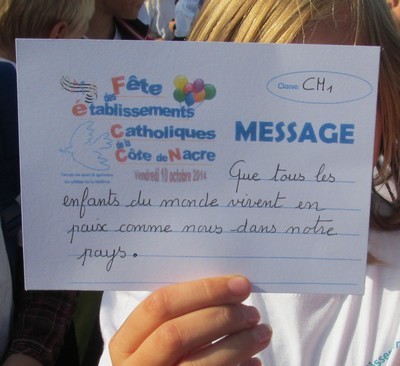 Fête
des
établissements
Catholiques
de la
Côte de Nacre
Vendredi 10 octobre 2014
Classe: CM1
MESSAGE
Que tous les
enfants du monde vivent en
paix comme nous dans notre
pays.